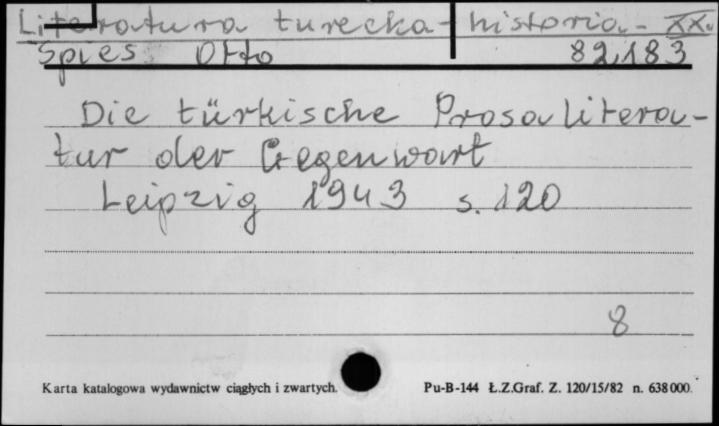 Literatura turecka - historia - XX w
Spies Otto 82,183
Die türkische Prosalitera-
tur der Gegenwart
Leipzig 1943 s. 120
8
Karta katalogowa wydawnictw ciągłych i zwartych. Pu-B-144 Ł.Z.Graf. Z. 120/15/82 n. 638000.